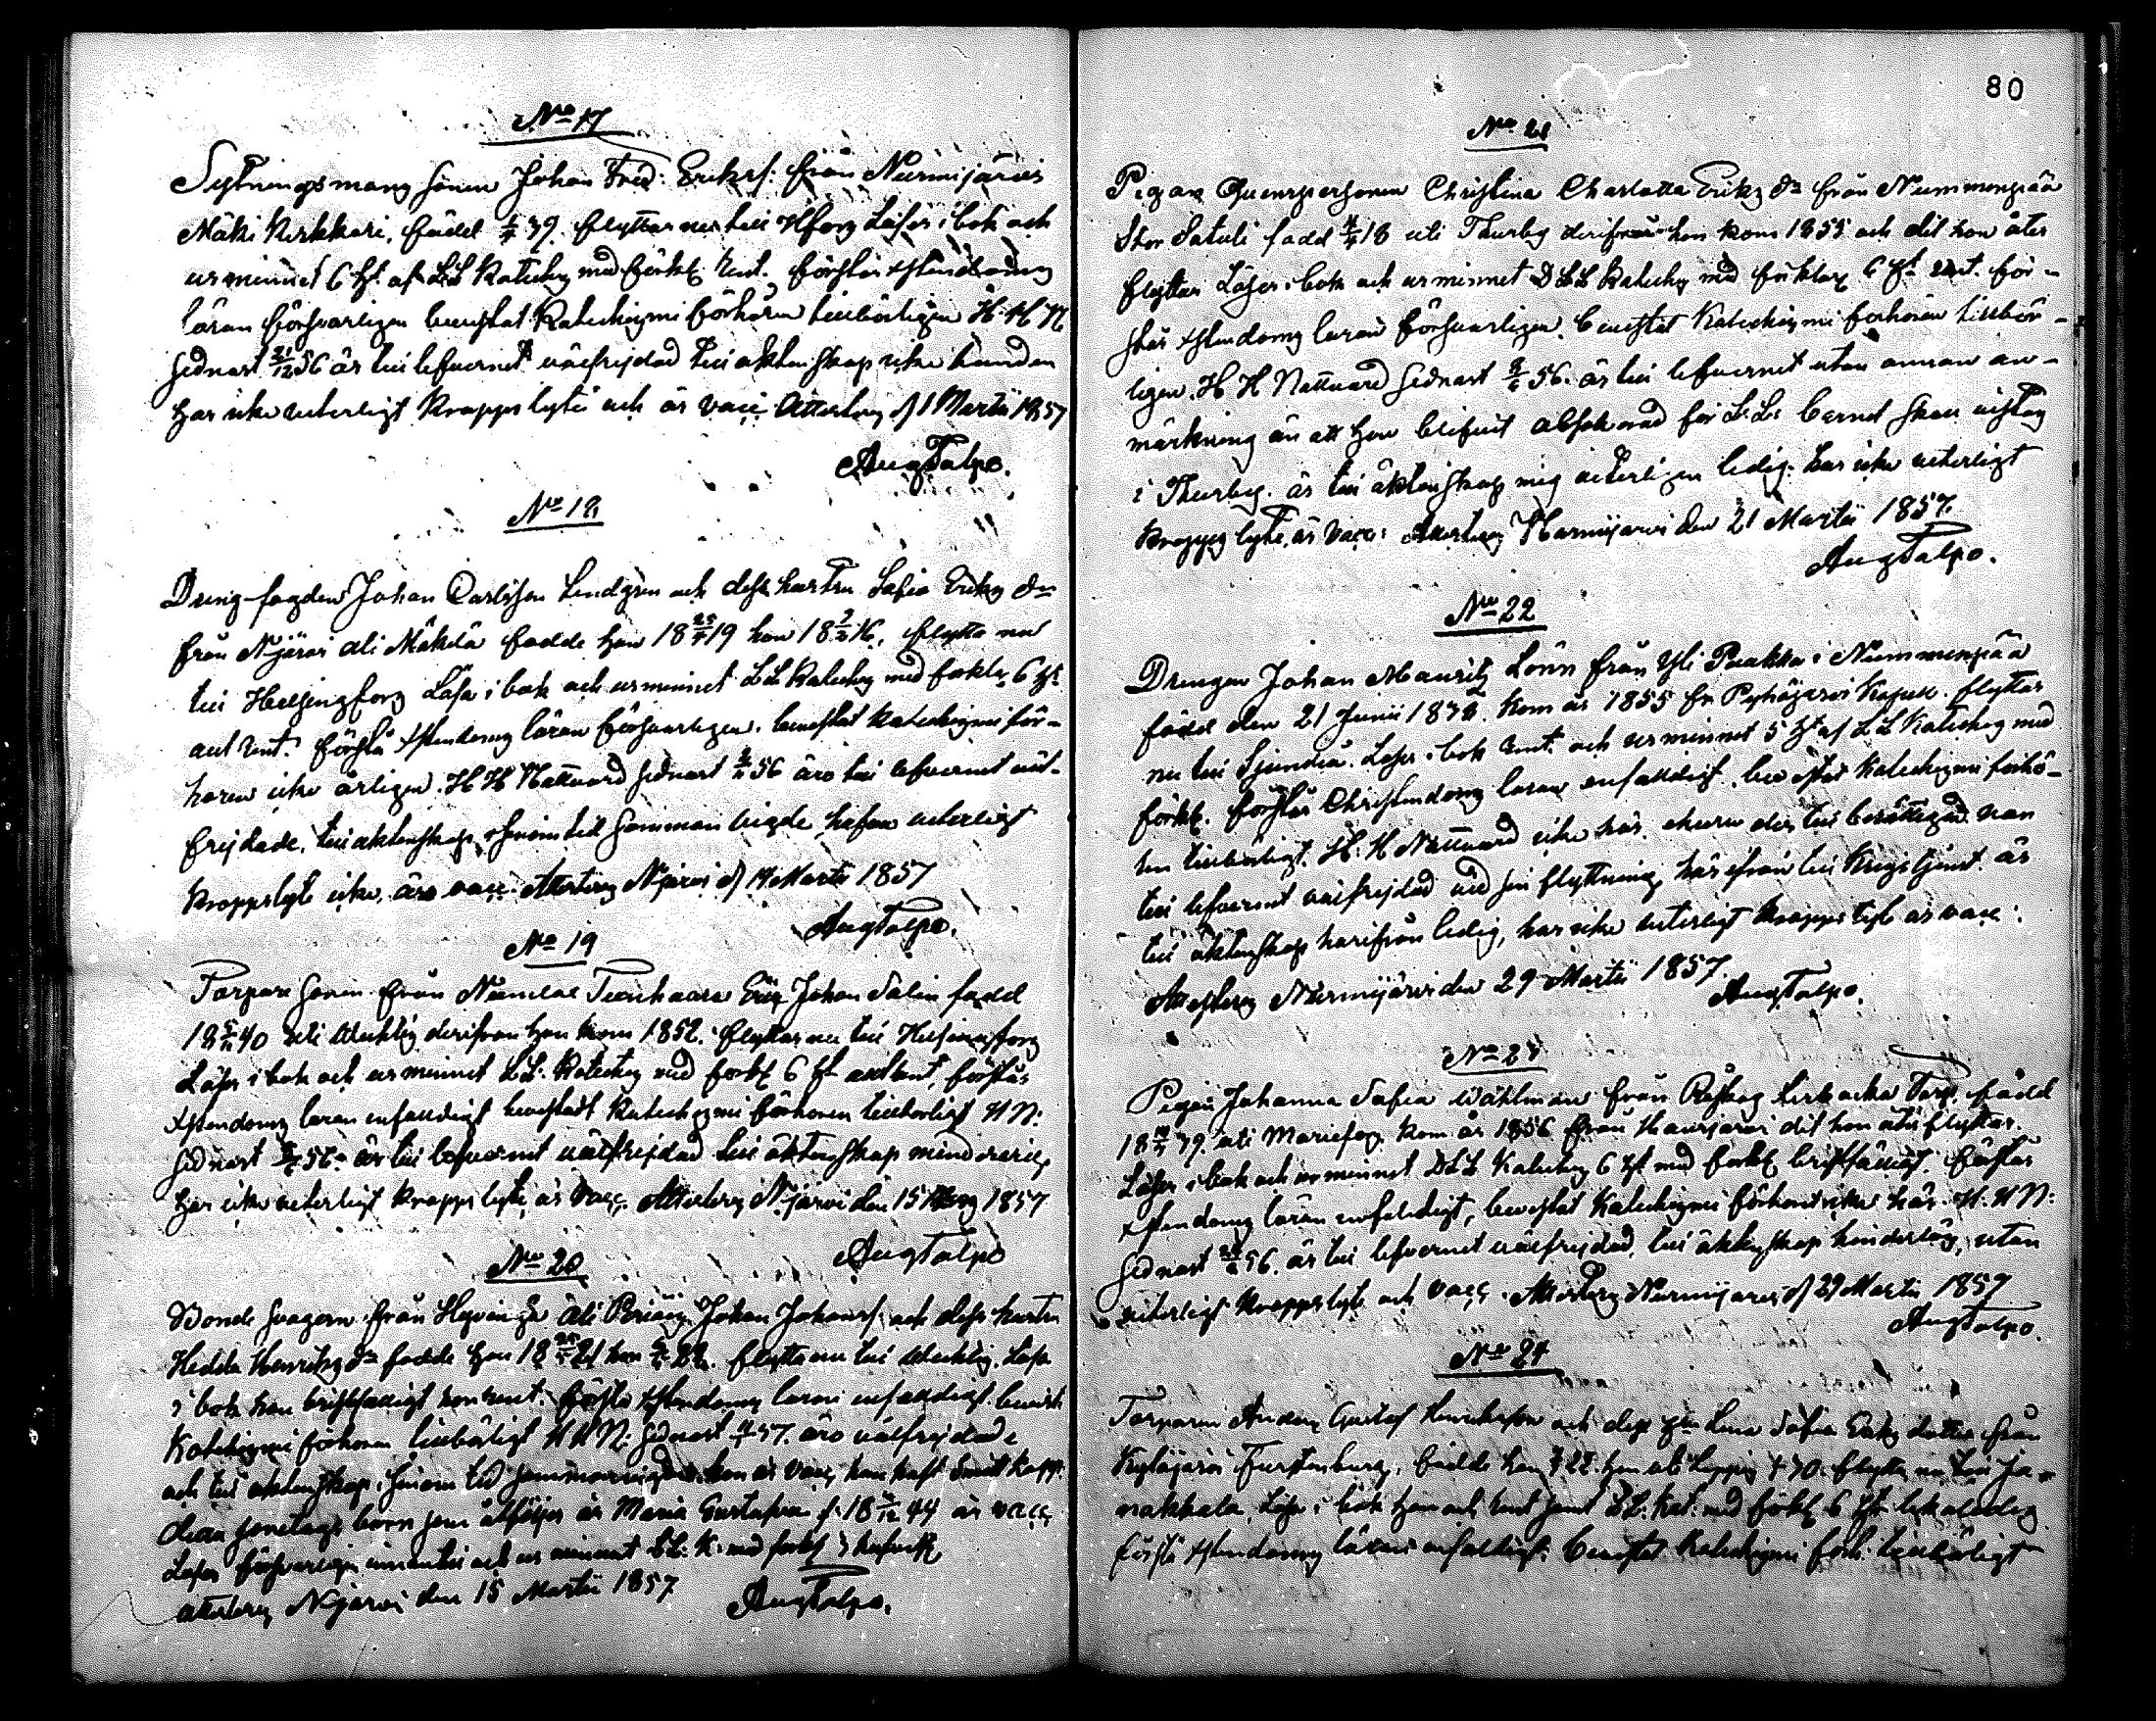 No 17
Sytningsmans sonen Johan Fred: Eriksf: från Nurmijärvi
Mäki Kerkkari, född 39. flyttar nu till Hfors Läser i bok och
ur minnet 6 hst af LL Kateches med förkl: rent. förstår xstendoms
läran försvarligen bevistat Katechismi förhören tillbörligen H. H N
sednast 21/12 56 är till lefvernet välfrejdad till äktenskap icke bunden
har icke veterligt kropps lyte och är vacc. Attesterar d 1 Martii 1857
Aug Talpo.
No 18
Dreng-fogden Johan Carlsson Lindgren och dess hustru Sofia Eriks dr
från Njärvi Ali Mäkelä födde han 18 19 hon 18 16. flytta nu
till Helsingfors Läsa i bok och ur minnet LL Kateches med förkl: 6 hst
rent. förstå xstendoms läran försvarligen. bevistat Katechismi för-
hören icke årligen. H H Nattvard sednast 56 äro till lefvernet väl-
frejdade, till äktenskap sinom tid samman vigde hafva veterligt
kroppslyte icke, äro vacc. Attesterar Njärvi d 14 Martii 1857
Aug Talpo.
No 19
Torpare sonen från Numlax Johan Salin född
18 40 uti derifrån han kom 1852. flyttar nu till Helsingfors
Läser i bok och ur minnet LL. Kateches med förkl 6 hst rent, förstår
xstendoms läran enfaldigt bevistadt Katechismi förhören tillbörligt H N:
sednast 56. är till lefvernet välfrejdad till äktenskap minderårig,
har icke veterligt kropps lyte är vacc. Attesterar Njärvi den 15 1857
Aug Talpo
No 20
Bonde svågern från Ali Johan Johansf: och dess hustru
Hedda Henriks dr födde han 18 21 hon 22. flytta nu till Läsa
i bok han bristfälligt hon rent. förstå xstendoms läran enfaldigt. bevist:
Katechismi förhören tillbörligt H H N: sednast 57. äro välfrejdade
och till äktenskap sinom tid sammanvigde hon är vacc, han haft
deras som åtföljer är Maria Gustafva f. 18 44 är vacc,
Läser försvarligen och ur minnet LL: K: med förkl
attesterar Njärvi den 15 Martii 1857
Aug Talpo.
80
No 21
Pigan Qvinspersonen Christina Charlotta Eriks dr från Nummenpää
Stor Satuli född 18 uti Thusby derifrån hon kom 1855 och dit hon åter
flyttar Läser i bok och ur minnet D LL Kateches med förklar 6 hst rent. för-
står xstendoms läran försvarligen. bevistat Katechismi förhören tillbör-
ligen. H H Nattvard sednast 56. är till lefvernet utan annan an-
märkning än att hon blifvit absolverad för L. L. barnet
i Thusby. är till äktenskap mig veterligen ledig. har icke veterligt
kropps lyte, är vacc: Attesterar Nurmijärvi den 21 Martii 1857.
Aug Talpo.
No 22
Drengen Johan Mauritz Lönn från Yli i Nummenpää
född den 21 Junii 183 . kom år 1855 fr Pyhäjärvi flyttar
nu till Sjundeå. Läser i bok rent och ur minnet 5 hst af LL Kateches med
förkl. förstår Christendoms läran enfaldigt. bevistat Katechismi förhö-
ren tillbörligt. H. H Nattvard icke här, ehuru der till berättigad. var
till lefvernet välfrejdad vid sin flyttning, härifrån till Krigstjenst. är
till äktenskap härifrån ledig, har icke veterligt kropps lyte är vacc:
Attesterar Nurmijärvi den 29 Martii 1857.
Aug Talpo.
No 23
Pigan Johanna Sofia Wåhlman från Torp, född
18 39. uti Mariefors. kom år 1856 från dit hon åter flyttar.
Läser i bok och ur minnet D LL Kateches 6 hst med förkl bristfälligt. förstår
xstendoms läran enfaldigt, bevistat Katechismi förhöret icke här. H. H N:
sednast 56. är till lefvernet välfrejdad, till äktenskap hinderlös, utan
veterligt kroppslyte och vacc. Attesterar Nurmijärvi d 29 Martii 1857
Aug Talpo.
No 24
Torparen Anders Gustaf Henriksson och dess hu Lena Sofia Eriks dotter från
Kytäjärvi Furstenburg, födde han 22. hon uti Loppis 30. flytta nu till Ja-
nakkala, Läser i bok han och hust samt LL. Kat: med förkl 6 hst
förstå xstendoms läran enfaldigt. bevistat Katechismi förh. tillbörligt